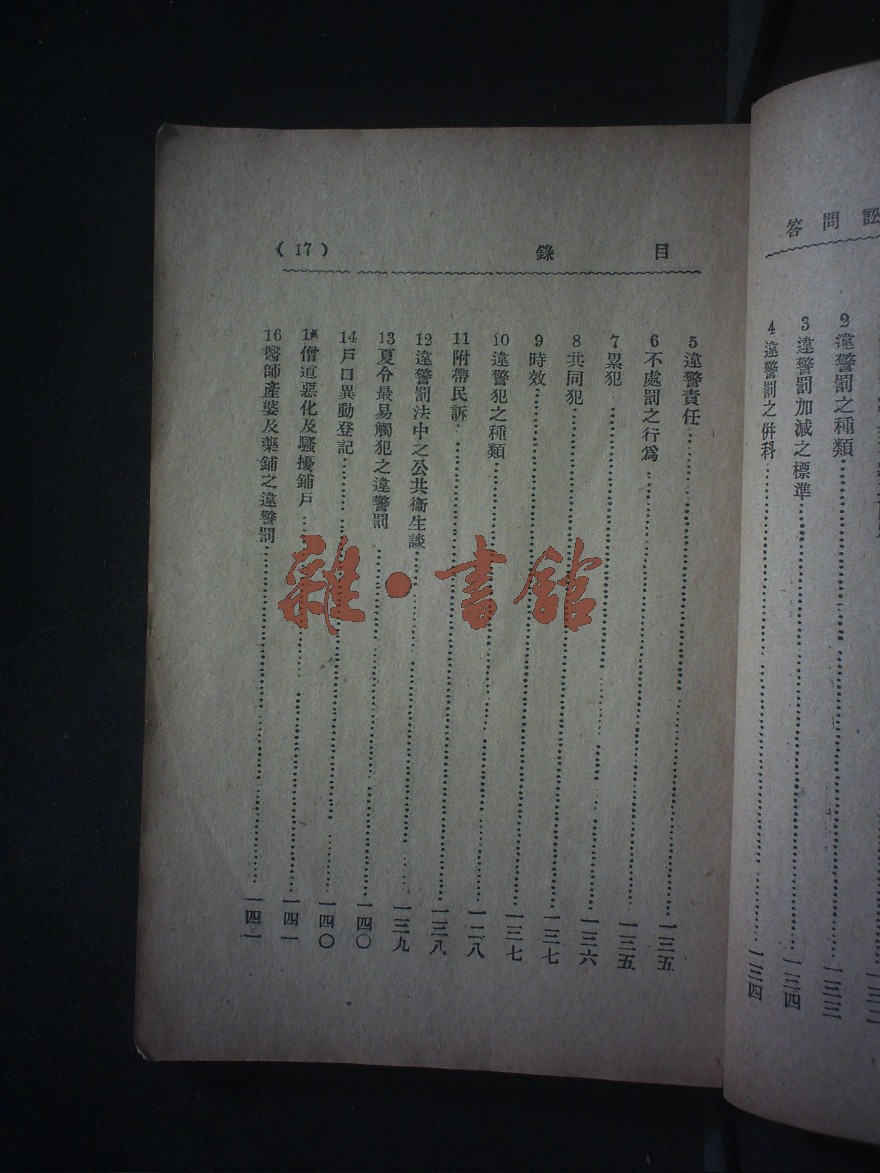 訟問答
2違警罰之種類……一三三
3違警罰加減之標準……一三四
4違警罰之併科……一三四
目錄 (17)
5違警責任……一三五
6不處罰之行為……一三五
7累犯……一三六
8共同犯……一三七
9時效……一三七
10違警犯之種類……一二八
11附帶民訴……一三八
12違警罰法中之公共衛生談……一三九
13夏令最易觸犯之違警罰……一四〇
14戶口異動登記……一四〇
僧道惡化及騷擾鋪戶……一四一
16醫師產婆及藥鋪之違警罰……一四二
雜·書館